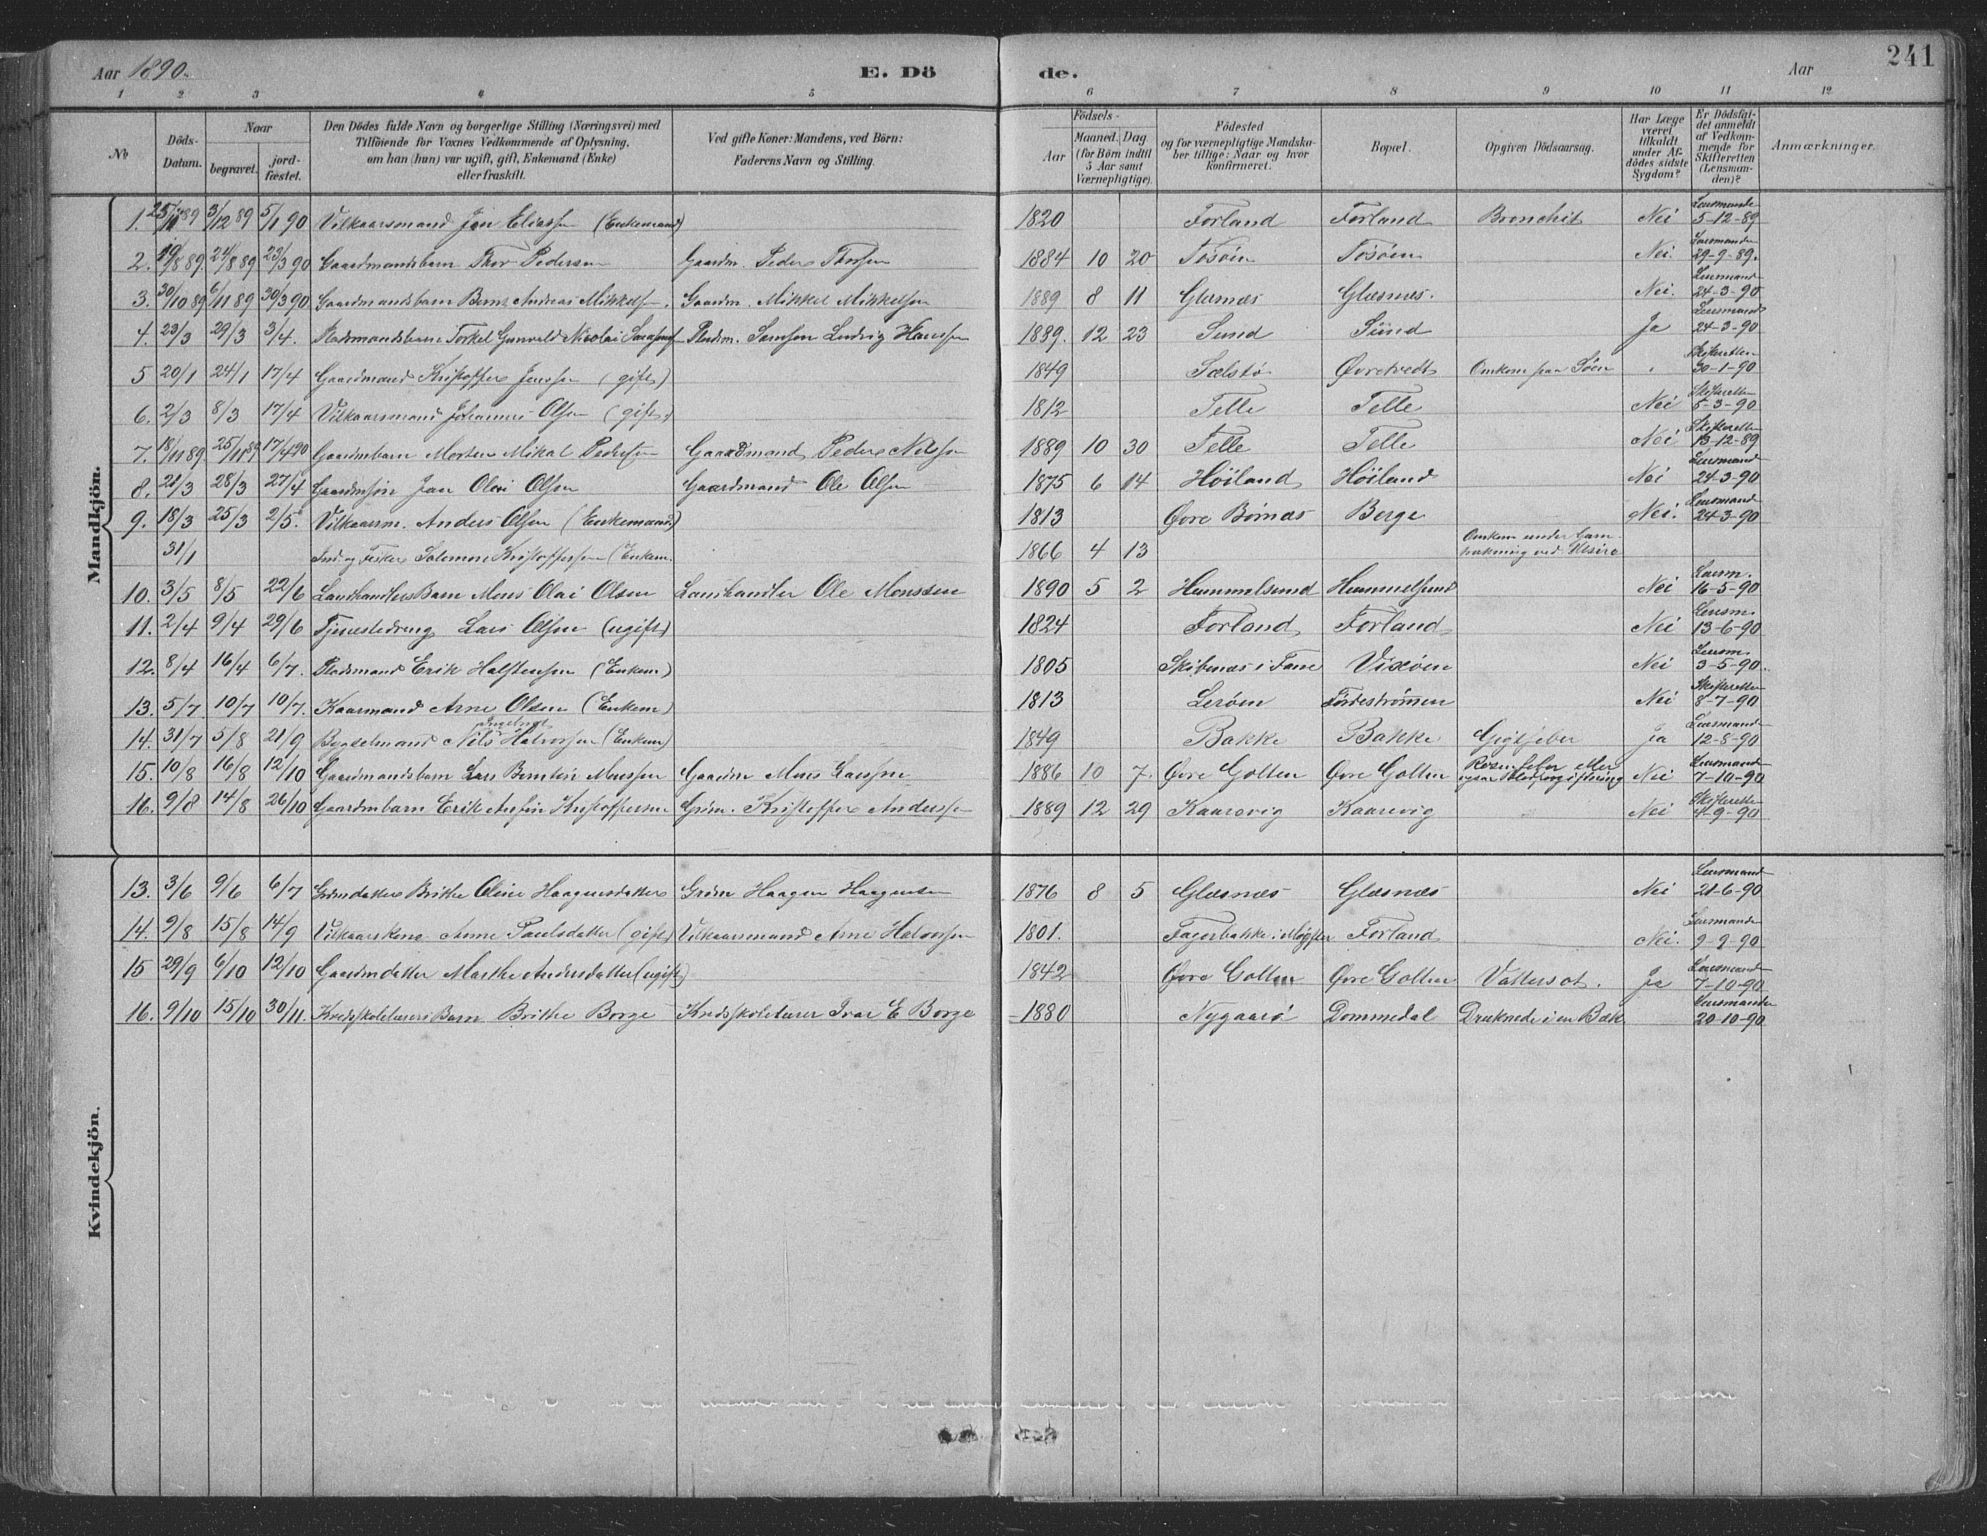 Aar 1890. E. Dö de. Aar 241
1 2 3 4 5 6 7 8 9 10 11 12
No
Döds-Datum.
Naar
begravet.
jord-fæstet.
Den Dödes fulde Navn og borgerlige Stilling (Næringsvei) med
Tilföiende for Voxnes Vedkommende af Oplysning,
om han (hun) var ugift, gift, Enkemand (Enke)
eller fraskilt.
Ved gifte Koner: Mandens, ved Börn:
Faderens Navn og Stilling.
Födsels-
Aar
Maaned. Dag
(for Börn indtil
5 Aar samt
Værnepligtige).
Födested
og for værnepligtige Mandska-
ber tillige: Naar og hvor
konfirmeret.
Bopæl.
Opgiven Dödsaarsag.
Har Læge
været
tilkaldt
under Af-
dödes sidste
Sygdom?
Er Dödsfal-
det anmeldt
af Vedkom-
mende for
Skifteretten
(Lensman-
den)?
Anmærkninger.
Mandkjön.
1. 25/11 89 3/12 89 5/1 90 Vilkaarsmand Jan Eliassen (Enkemand) 1820 Forland Forland Bronchit Nei Lensmanden 5-12-89
2. 19/8 89. 24/8 89 23/3 90 Gaardmandsbarn Thor Pedersen Gaardm. Peder Thorsen 1884 10 20 Tosøin Tosøin Nei. Lensmanden 29-9-89.
3. 30/10 89 6/11 89 30/3 90 Gaardmandsbarn Bernt Andreas Mikkelsen. Gaardm. Mikkel Mikkelsen 1889 8 11 Glæsnæs Glæsnæs. Nei. Lensmand 24-3-90
4. 23/3 29/3 3/4. Pladsmandsbarn Torkel Gunvald Nicolai Pladsm. Samson Ludvig Hansen 1889. 12 23 Sund Sund Ja Lensmand 24-3-90
5 20/1 24/1 17/4 Gaardmand Kristoffer Jensen (gift) 1849 Sælstø Øvretvedt Omkom paa Søen Skifteretten 30-1-90
6. 2/3 8/3 17/4 Vilkaarsmand Johannes Olsen (gift) 1812 Telle Telle Nei Skifteretten 5-3-90
7. 18/11 89. 25/11 89 17/4 90 Gaardmbarn Morten Mikal Pedersen Gaardmand Peder Nilsen 1889 10 30 Telle Telle Nei Skifteretten 13-12-89
8. 21/3 28/3 27/4 Gaardmsøn Jan Olai Olsen Gaardmand Ole Olsen 1875 6 14 Høiland Høiland Nei Lensmand 24-3-90
9. 18/3 25/3 2/5. Vilkaarsm. Anders Olsen (Enkemand) 1813 Øvre Børnæs Berge Nei. Lensmand 24-3-90
31/1 Ind. og Fisker Salomon Kristoffersen (Enkem. 1866 4 13 Omkom under Garn-
trækning ved
10. 3/5 8/5 22/6 Landhandlers Barn Mons Olai Olsen Landhandler Ole Monssen 1890 5 2 Hummelsund Hummelsund Nei Lensm. 16-5-90
11. 2/4 9/4 29/6 Tjenestedreng Lars Olsen (ugift) 1824 Forland Forland Nei Lensm. 13-6-90
12. 8/4 16/4 6/7. Pladsmand Erik Halstensen (Enkem) 1805 Skibenæs i Fane Vixøen Nei Lensm. 3-5-90.
13. 5/7 10/7 10/7. Kaarmand Arne Olsen (Enkem) 1813 Lerøen Førdestrømmen Nei Skifteretten 8-7-90
14. 31/7 5/8 21/9 Bygselmand Nils Halvorsen (Enkem) 1849 Bakke Bakke Gigtfeber Ja Lensmand 12-8-90
15. 10/8 16/8 12/10 Gaardmandsbarn Lars Berntin Monsen Gaardm Mons Larssen 1886 10 7. Øvre Golten Øvre Golten Rosenfeber eller
ogsaa Blodforgiftning Nei Lensmand 7-10-90
16. 9/8 14/8 26/10 Gaardmbarn Erik Anfin Kristoffersen Grdm. Kristoffer Andersen 1889 12 29 Kaarevig Kaarevig Nei Skifteretten 4-9-90
Kvindekjön.
13. 3/6 9/6 6/7 Grdmdatter Brithe Oline Haagensdatter Grdm Haagen Haagensen 1876 8 5 Glæsnæs Glæsnæs Nei Lensmand 21-6-90
14. 9/8 15/8 14/9 Vilkaarskone Anne Paulsdatter (gift) Vilkaarsmand Arne Halvorsen 1801. Fagerbakke i Møgster Forland Nei. Lensmanden 9-9-90
15 29/9 6/10 12/10 Gaardmdatter Marthe Andersdatter (ugift) 1842 Øvre Golten Øvre Golten Vattersot. Ja Lensmand 7-10-90
16. 9/10 15/10 30/11. Kredsskolelærers Barn Brithe Borge Kredsskolelærer Ivar E Borge 1880 Nygaard Dommedal Druknede i en Bæk Lensmanden 20-10-90